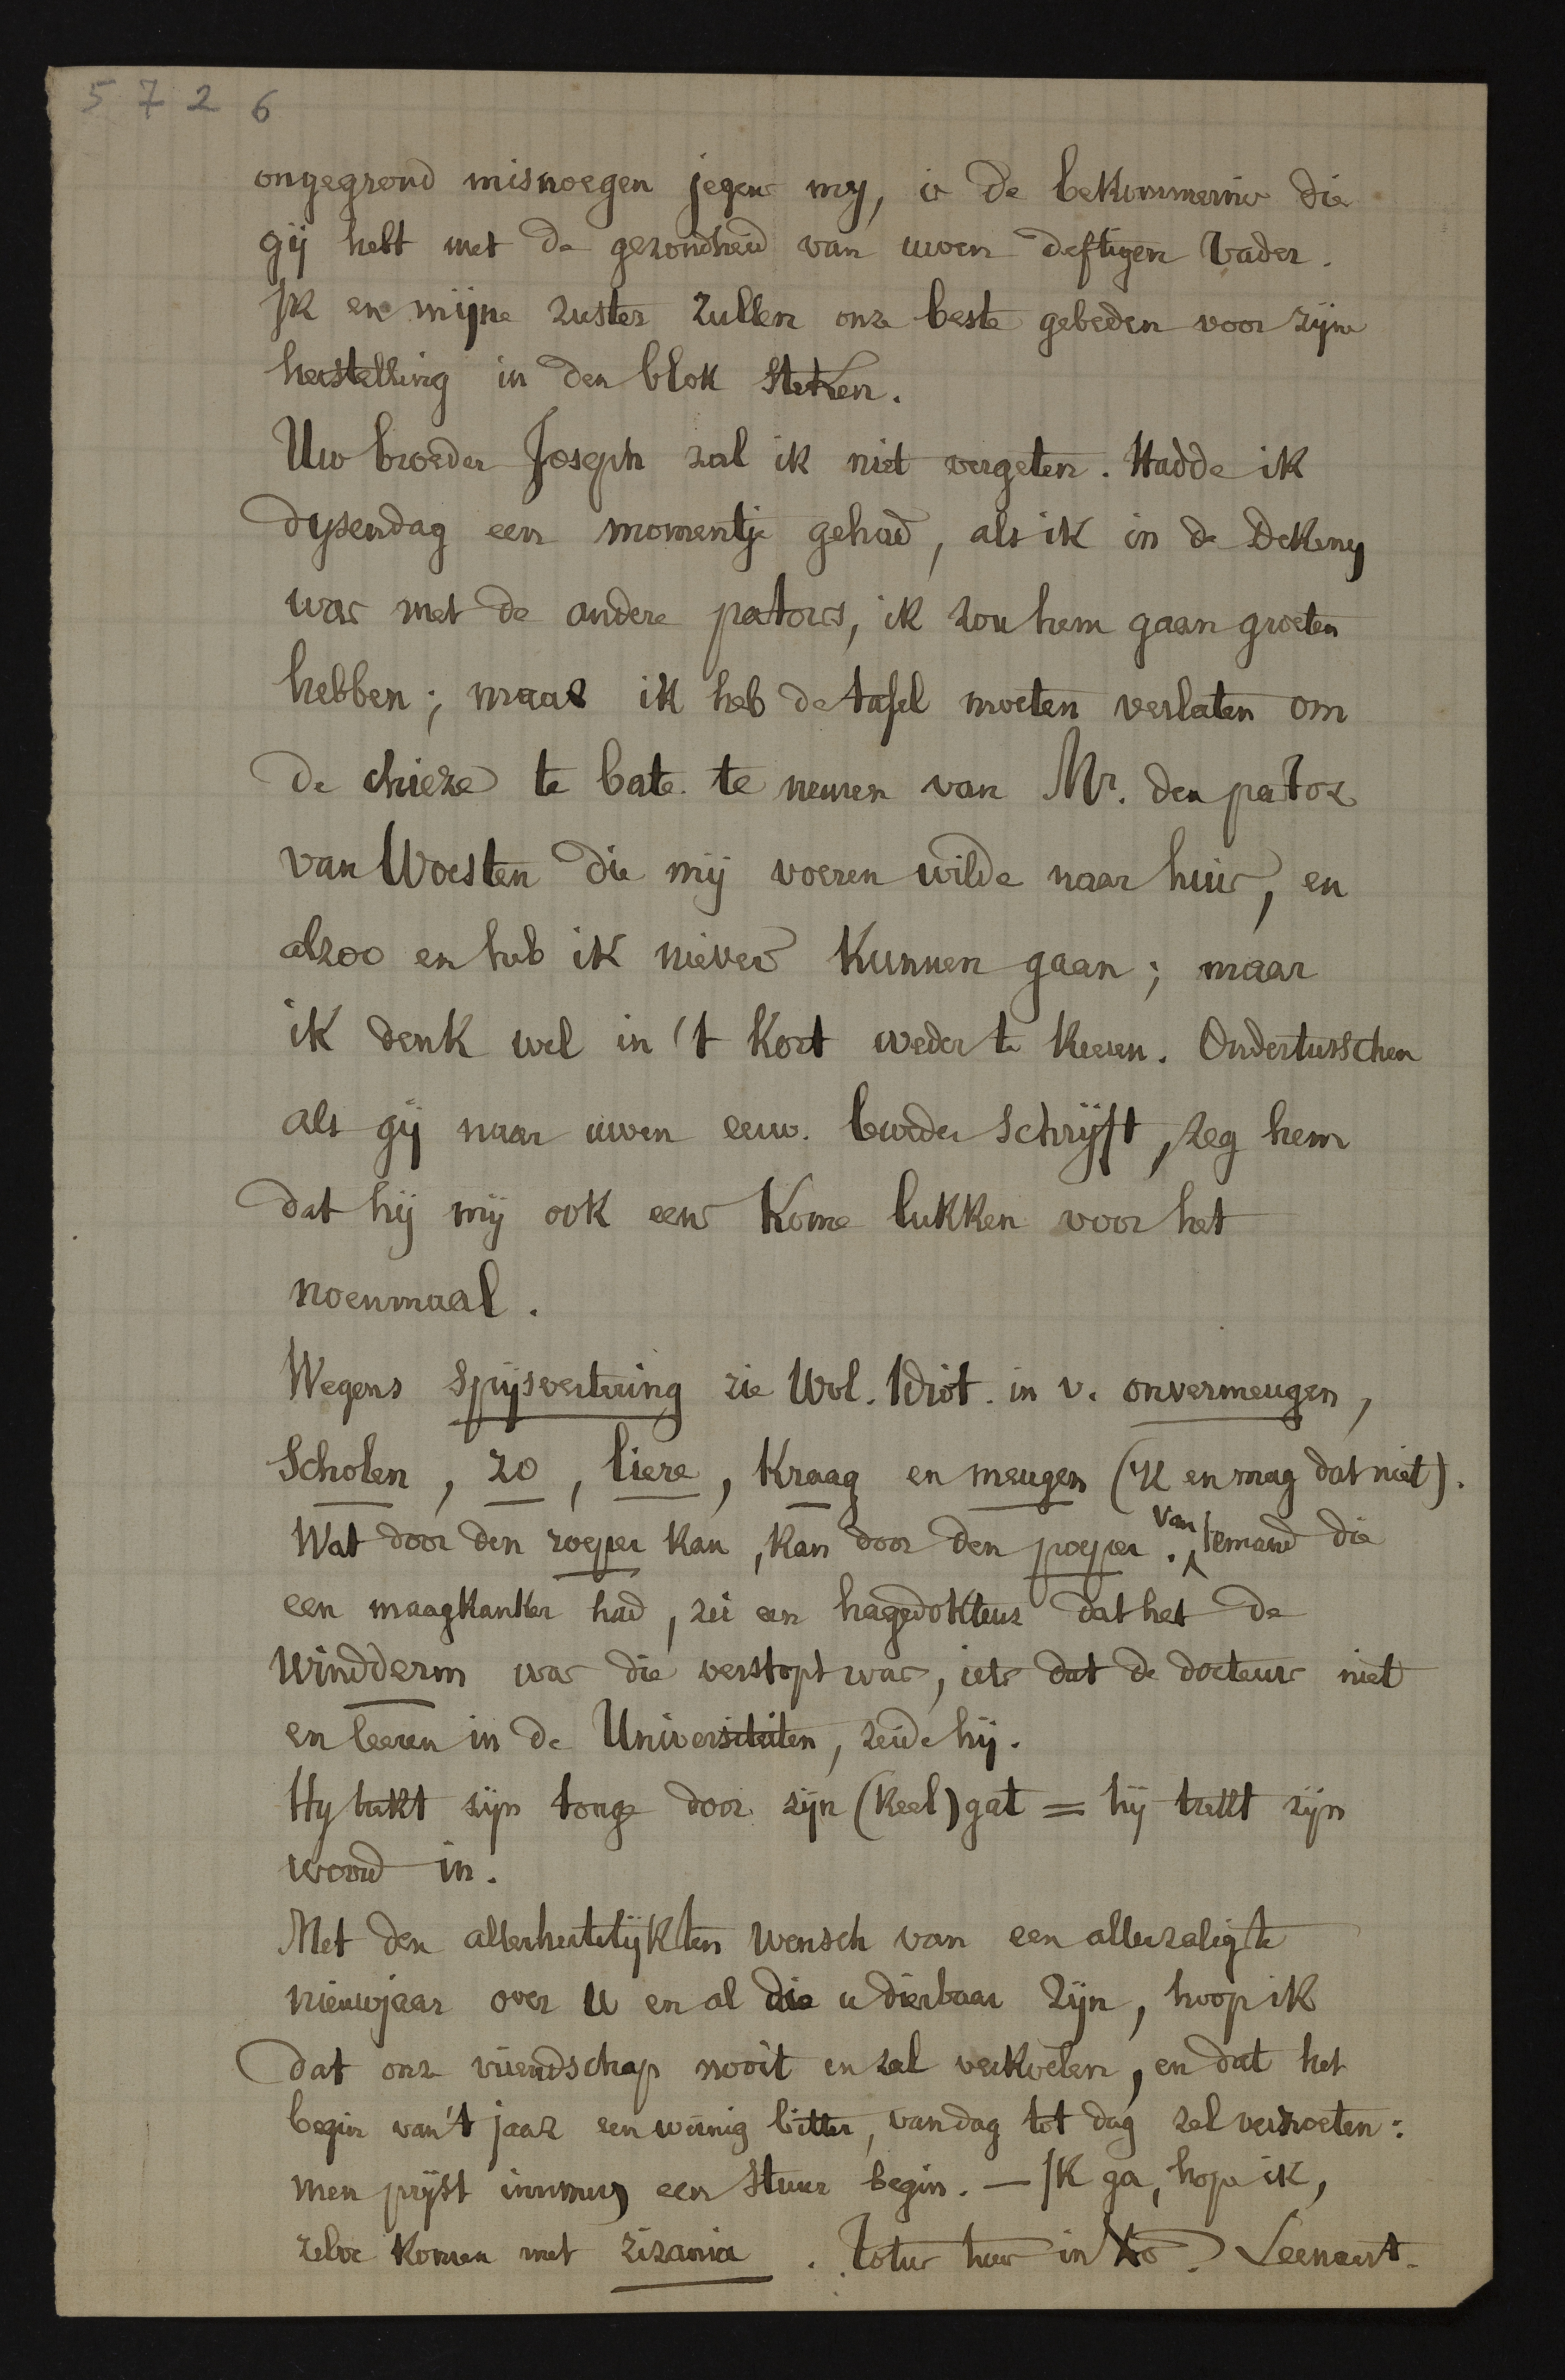 5 7 2 6
ongegrond misnoegen jegens my, is de bekommernis die
gij hebt met de gezondheid van uwen deftigen Vader.
Ik en mijne zuster zullen onze beste gebeden voor zijne
herstelling in den blok steken.
Uw broeder Joseph zal ik niet vergeten. Hadde ik
dysendag een momentje gehad, als ik in de Dekeny
was met de andere pastors, ik zou hem gaan groeten
hebben; maar ik heb de tafel moeten verlaten om
de chieze te bate te nemen van Mr. den pastor
van Woesten die mij voeren wilde naar huis, en
alzoo en heb ik nievers kunnen gaan; maar
ik denk wel in 't kort weder te keeren. Ondertusschen
als gij naar uwen eeuw. broeder schrijft, zeg hem
dat hij mij ook eens kome lukken voor het
noenmaal.
Wegens spijsvertering zie Wvl. Idiot. in v. onvermeugen,
Scholen, zo, liere, kraag en meugen (ik en mag dat niet).
Wat door den zoeper kan, kan door den poeper. Van iemand die
een maagkanker had, zei een hagedokteur dat het de
windderm was die verstopt was, iets dat de docteurs niet
en leeren in de Universiteiten, zeide hij.
Hy trekt zijn tonge door zijn (keel)gat = hij trekt zijn
woord in.
Met den allerhertelijksten wensch van een allerzaligste
nieuwjaar over U en al die u dierbaar zijn, hoop ik
dat onze vriendschap nooit en zal verkoelen, en dat het
begin van 't jaar een weinig bitter, van dag tot dag zal verzoeten:
men prijst immers een stuur begin. — Ik ga, hope ik,
zelve komen met zizania. Totus tuus in Xo. Leenaert.